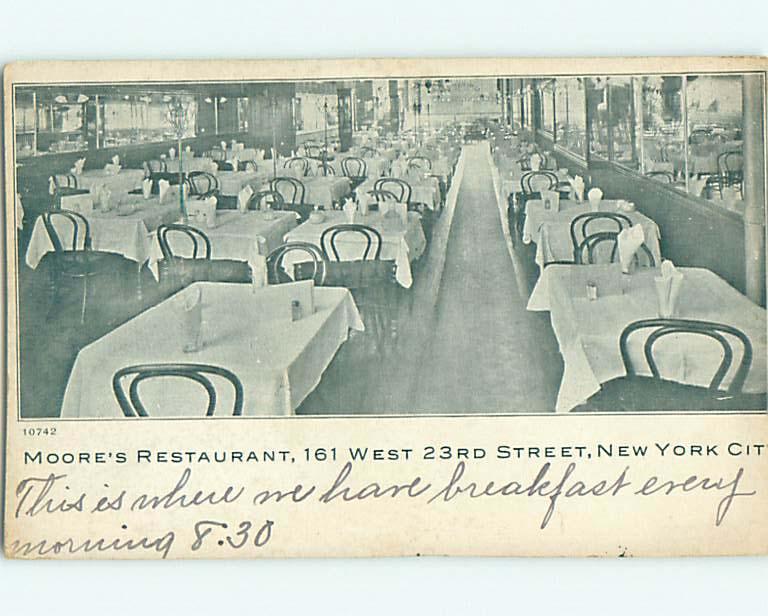 10742
MOORE'S RESTAURANT, 161 WEST 23RD STREET, NEW YORK CIT
This is where we have breakfast every
morning 8.30